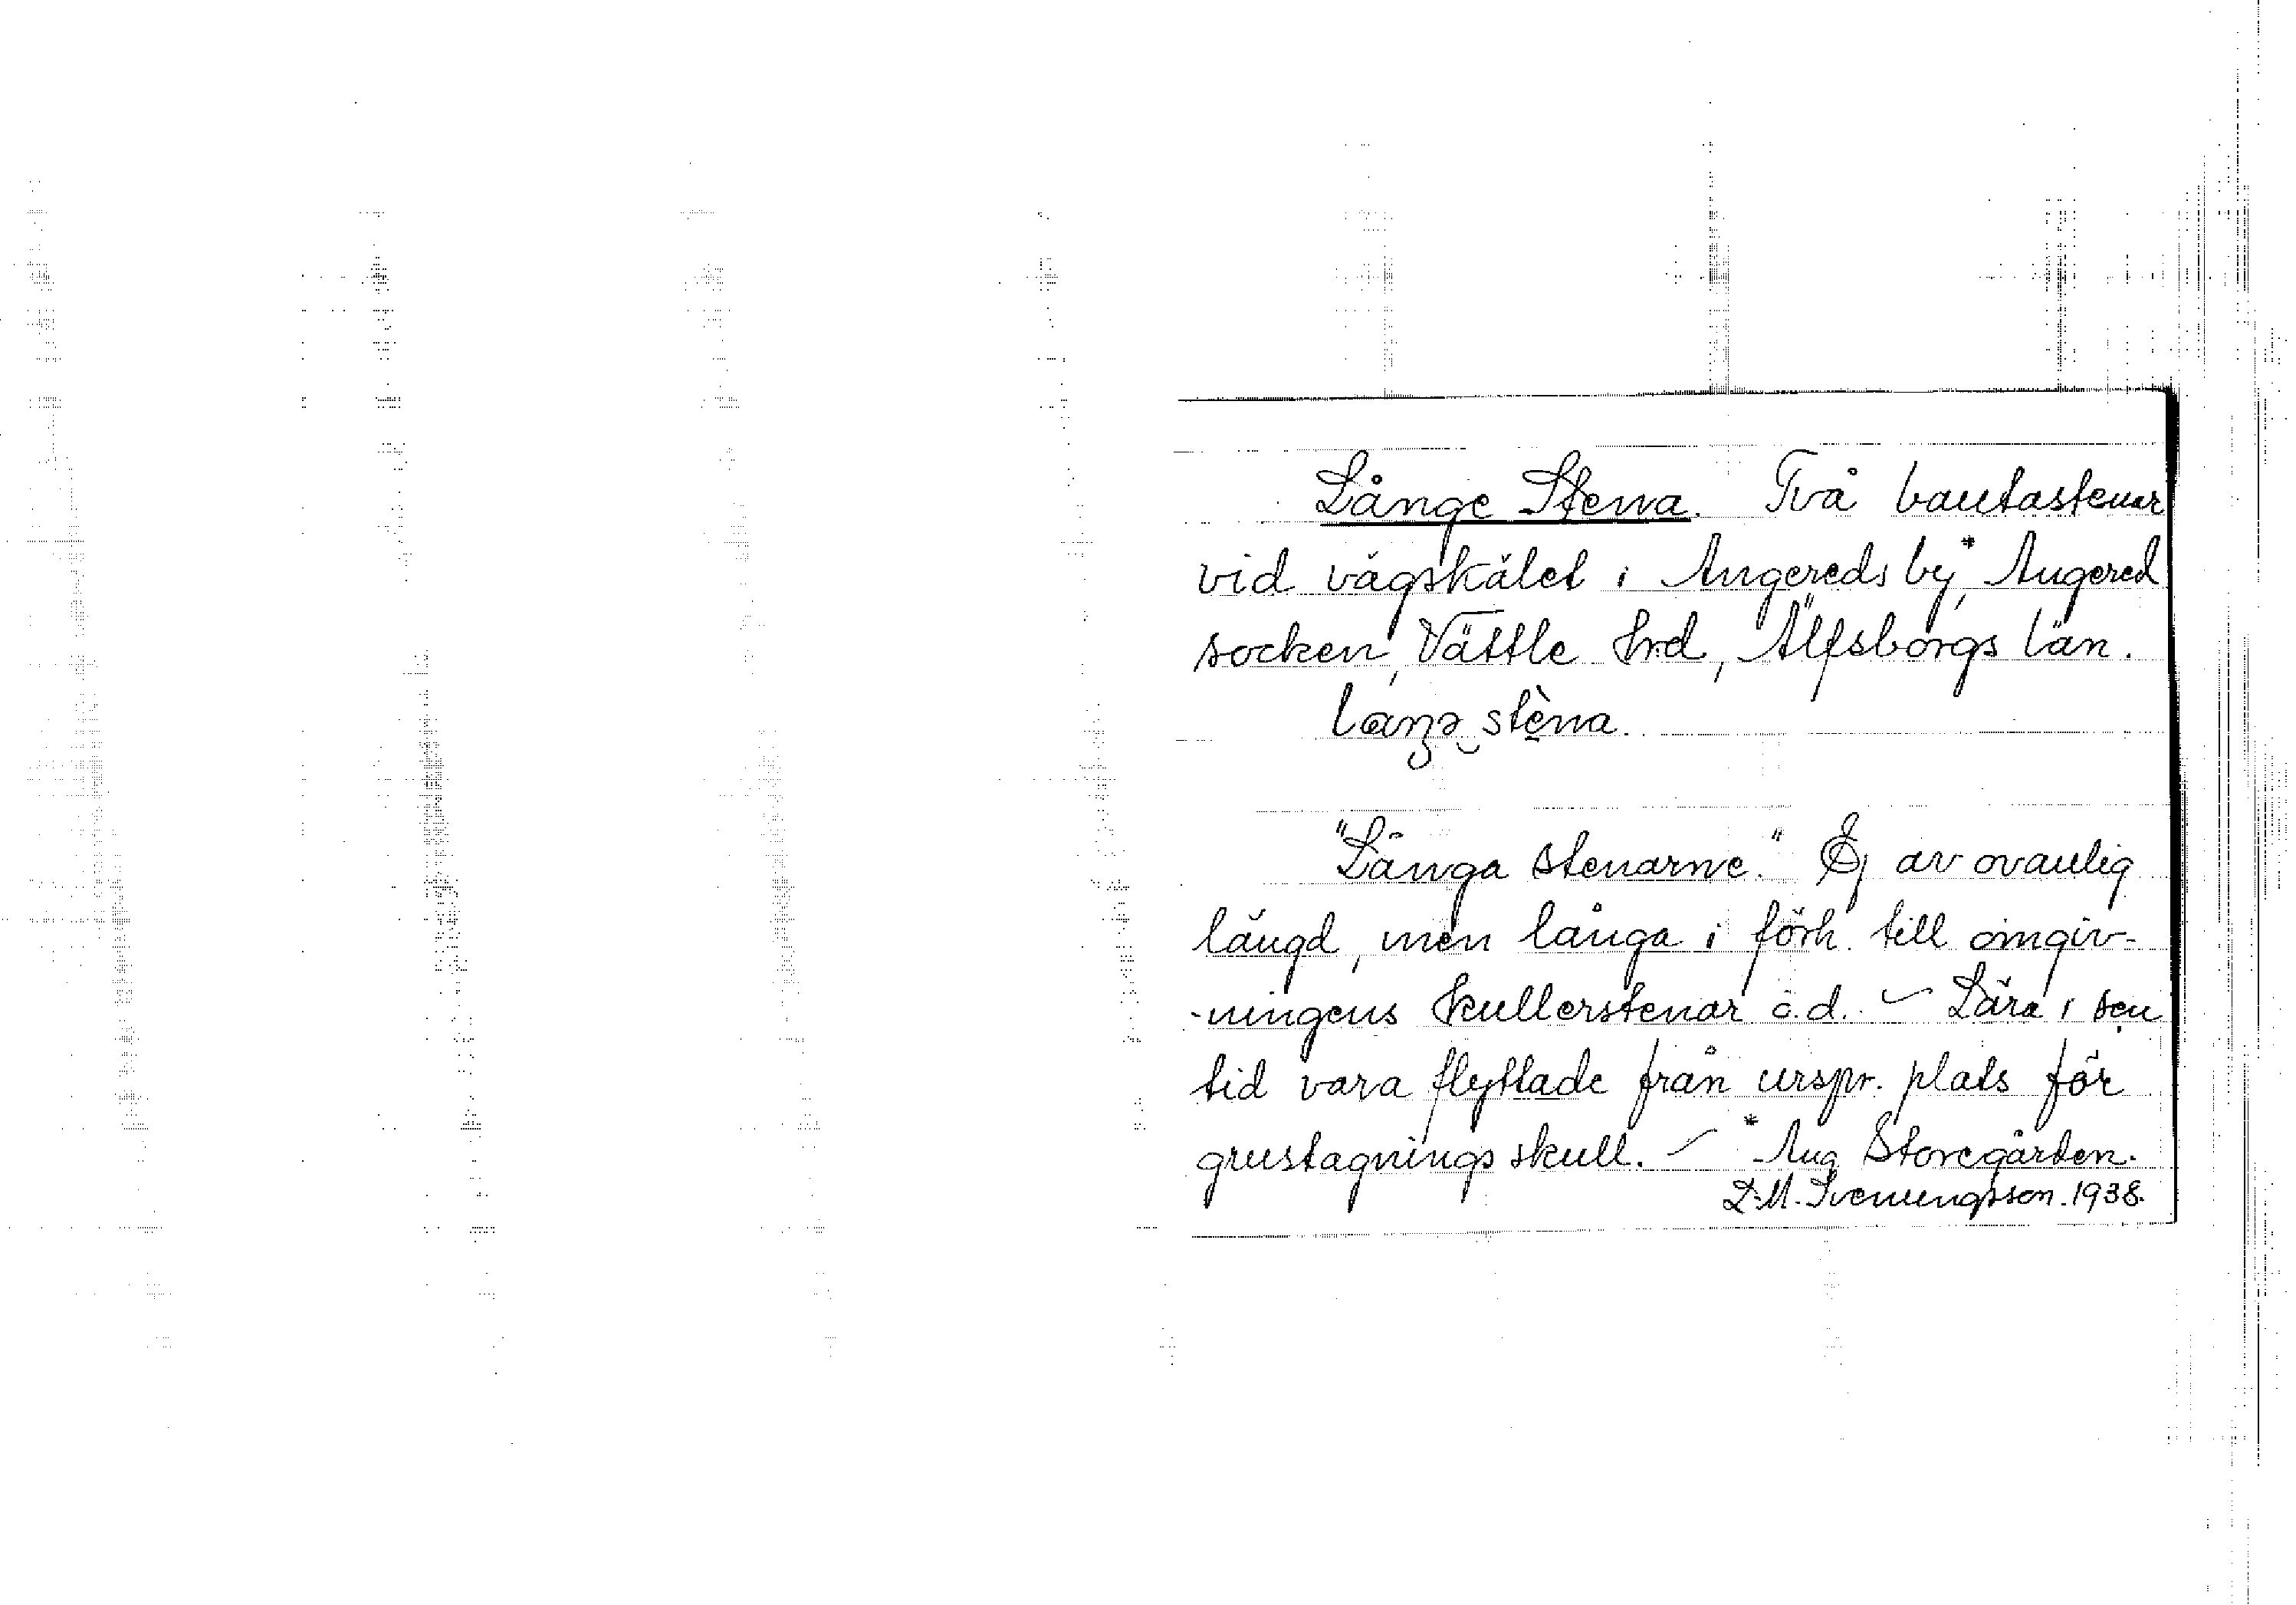 Långe Stena. Två bautastenar
vid vägskälet i Angereds by,* Angered
socken, Vättle hrd, Älfsborgs län.
"Långa stenarne." Ej av ovanlig
längd, men långa i förh. till omgiv-
-ningens kullerstenar o.d. – Lära i sen
tid vara flyttade från urspr. plats för
grustagnings skull. – * Ang Storegården.
L. M. Svenungsson. 1938.